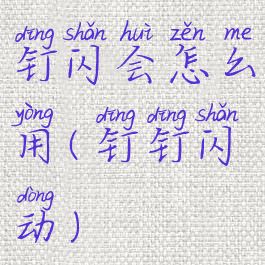 dīng shǎn huì zěn me
钉闪会怎么
yòng dīng dīng shǎn
用(钉钉闪
dòng
动)